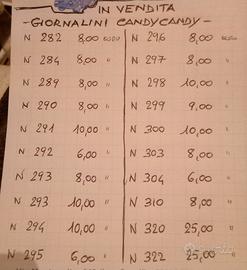 IN VENDITA
-GIORNALINI CANDYCANDY-
N 282 8,00 EURO
N 284 8,00 "
N 289 8,00 "
N 290 8,00 "
N 291 10,00 "
N 292 6,00 "
N 293 8,00 "
N 293 10,00 "
N 294 10,00 "
N 295 6,00 "
N 296 8,00 EURO
N 297 8,00 "
N 298 10,00 "
N 299 9,00 "
N 300 10,00 "
N 303 8,00 "
N 304 6,00 "
N 310 8,00 "
N 320 25,00 "
N 322 25,00 "
subito